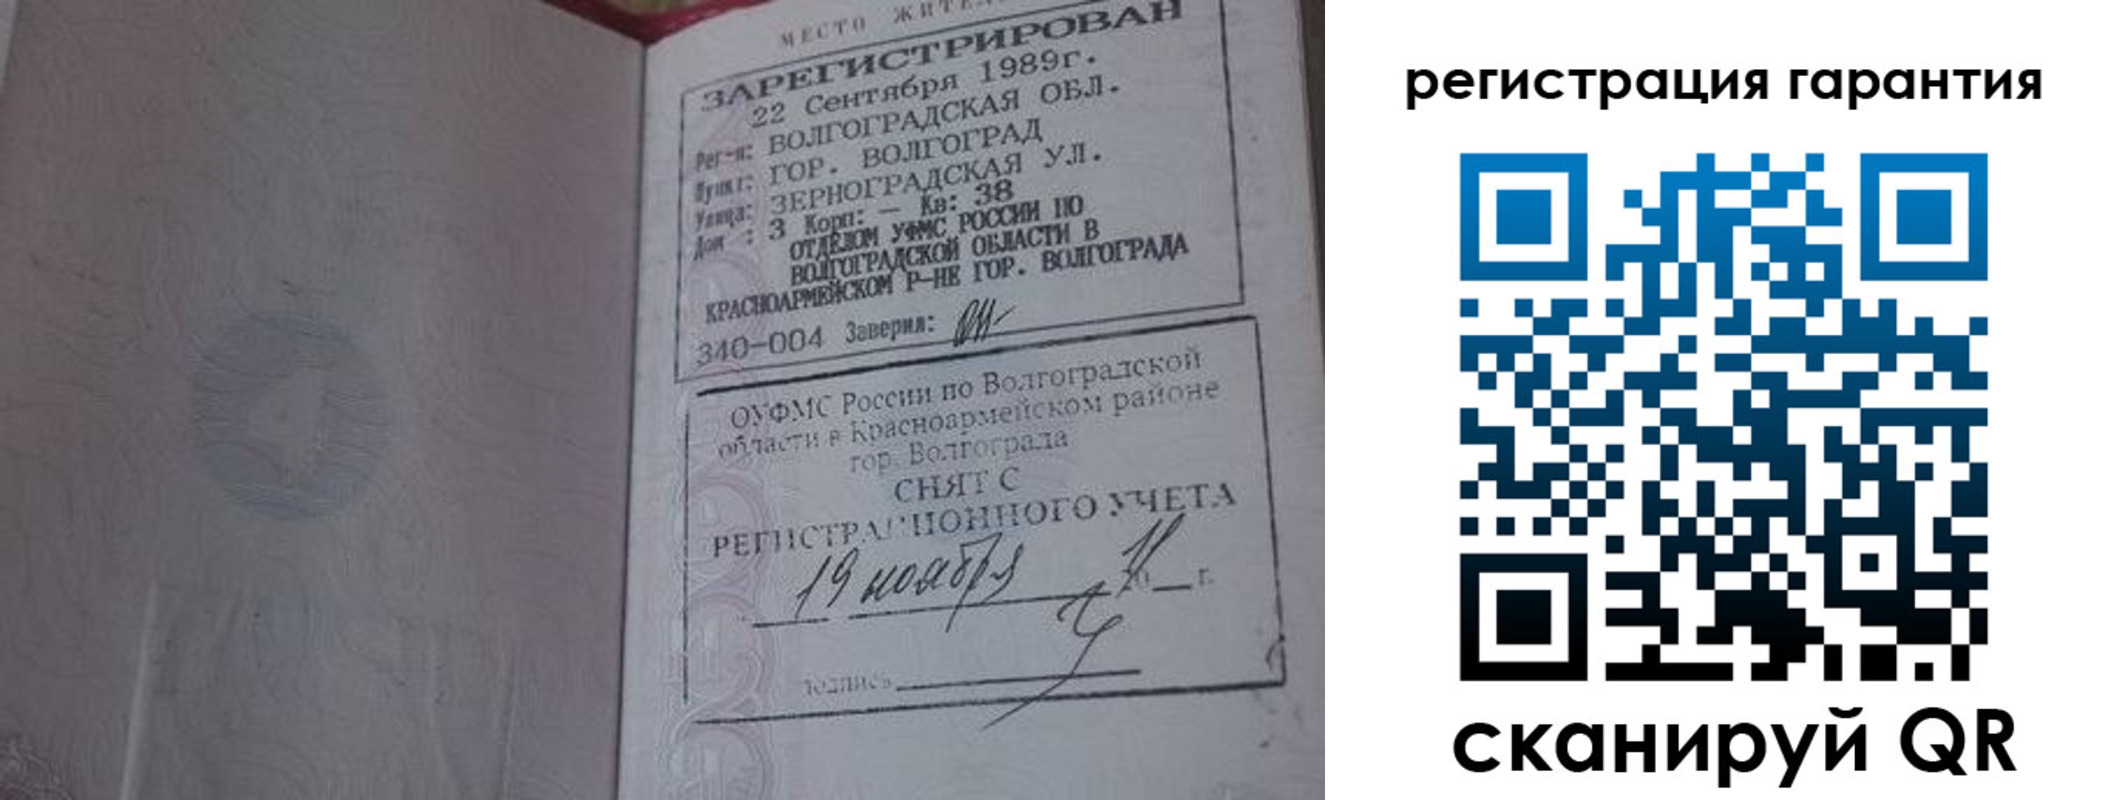 МЕСТО ЖИТЕЛ
ЗАРЕГИСТРИРОВАН
22 Сентября 1989г.
Рег-н: ВОЛГОГРАДСКАЯ ОБЛ.
Пункт: ГОР. ВОЛГОГРАД
Улица: ЗЕРНОГРАДСКАЯ УЛ.
Дом : 3 Корп: — Кв: 38
ОТДЕЛОМ УФМС РОССИИ ПО
ВОЛГОГРАДСКОЙ ОБЛАСТИ В
КРАСНОАРМЕЙСКОМ Р-НЕ ГОР. ВОЛГОГРАДА
340-004 Заверил:
ОУФМС России по Волгоградской
области в Красноармейском районе
гор. Волгограда
СНЯТ С
РЕГИСТРАЦИОННОГО УЧЕТА
19 ноября 20 11 г.
подпись
регистрация гарантия
сканируй QR